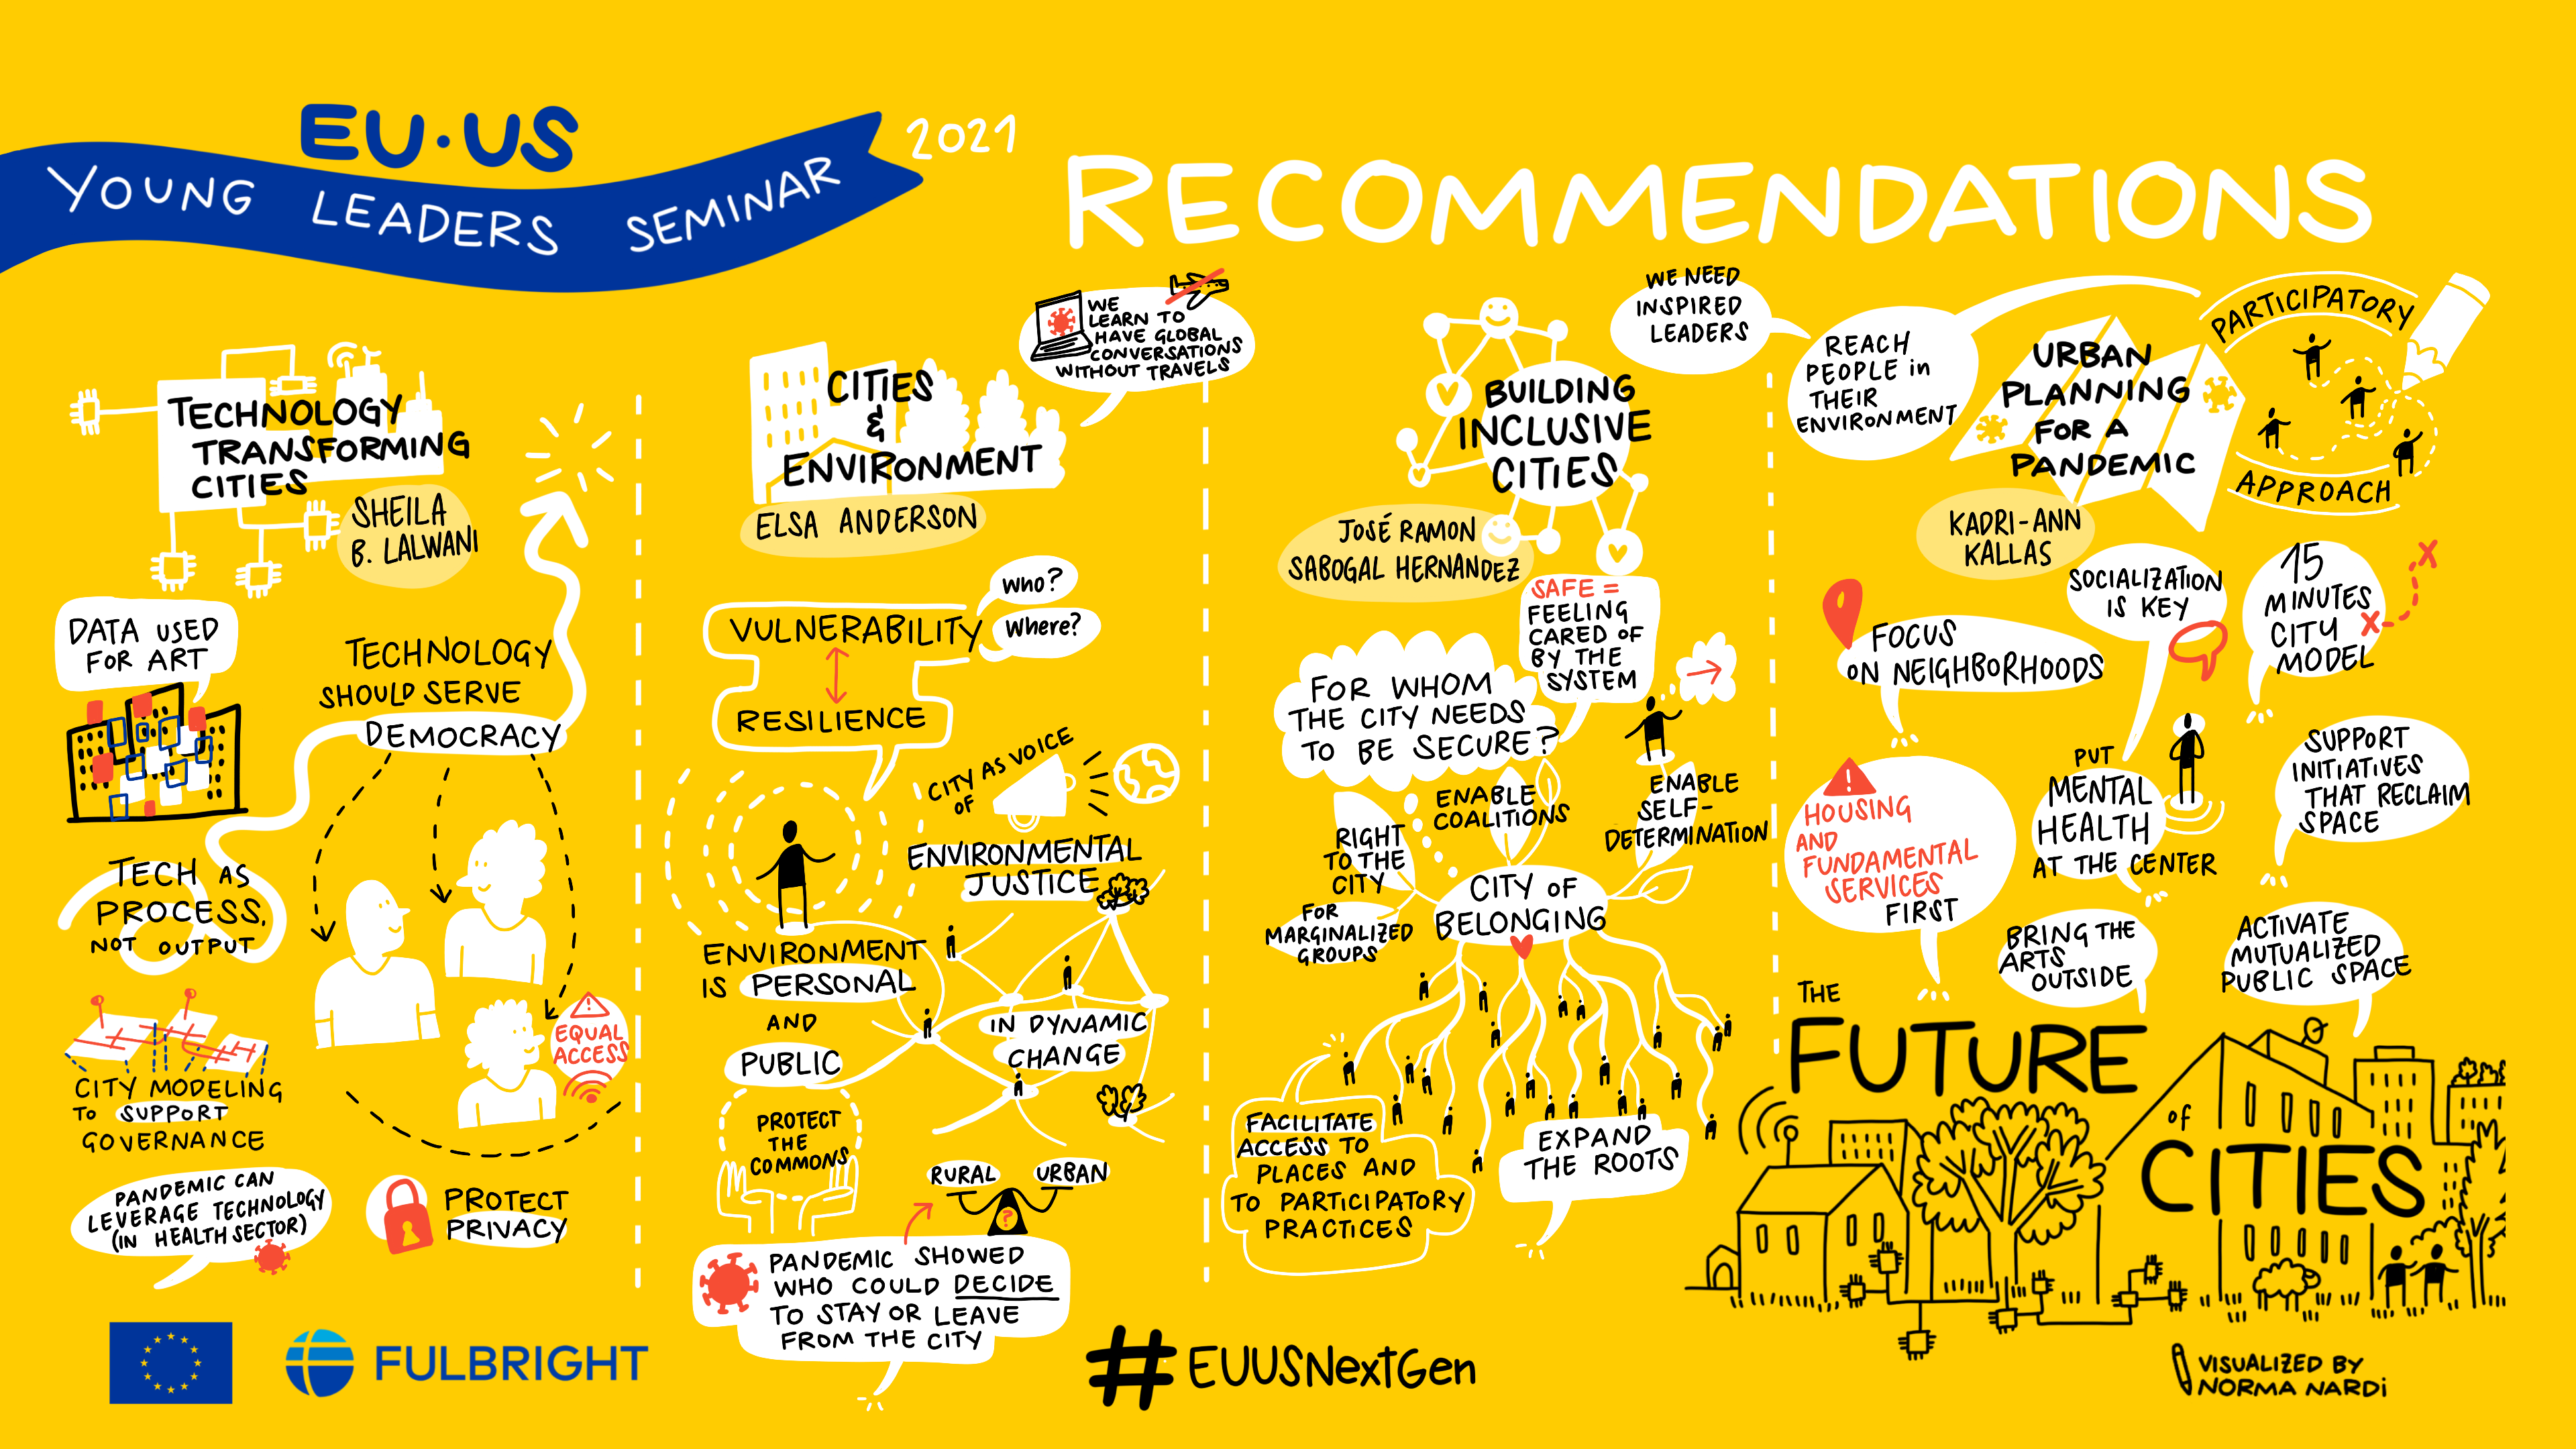 EU·US
YOUNG LEADERS SEMINAR
2021
RECOMMENDATIONS
TECHNOLOGY
TRANSFORMING
CITIES
SHEILA
B. LALWANI
DATA USED
FOR ART
TECHNOLOGY
SHOULD SERVE
DEMOCRACY
TECH AS
PROCESS,
NOT OUTPUT
EQUAL
ACCESS
CITY MODELING
TO SUPPORT
GOVERNANCE
PANDEMIC CAN
LEVERAGE TECHNOLOGY
(IN HEALTH SECTOR)
PROTECT
PRIVACY
WE
LEARN TO
HAVE GLOBAL
CONVERSATIONS
WITHOUT TRAVELS
CITIES
&
ENVIRONMENT
ELSA ANDERSON
WHO?
WHERE?
VULNERABILITY
RESILIENCE
CITY AS VOICE
OF
ENVIRONMENTAL
JUSTICE
ENVIRONMENT
IS PERSONAL
AND
PUBLIC
IN DYNAMIC
CHANGE
PROTECT
THE
COMMONS
RURAL
URBAN
?
PANDEMIC SHOWED
WHO COULD DECIDE
TO STAY OR LEAVE
FROM THE CITY
BUILDING
INCLUSIVE
CITIES
JOSÉ RAMON
SABOGAL HERNANDEZ
SAFE =
FEELING
CARED OF
BY THE
SYSTEM
FOR WHOM
THE CITY NEEDS
TO BE SECURE?
RIGHT
TO THE
CITY
ENABLE
COALITIONS
ENABLE
SELF-
DETERMINATION
FOR
MARGINALIZED
GROUPS
CITY OF
BELONGING
FACILITATE
ACCESS TO
PLACES AND
TO PARTICIPATORY
PRACTICES
EXPAND
THE ROOTS
WE NEED
INSPIRED
LEADERS
REACH
PEOPLE in
THEIR
ENVIRONMENT
URBAN
PLANNING
FOR A
PANDEMIC
KADRI-ANN
KALLAS
PARTICIPATORY
APPROACH
FOCUS
ON NEIGHBORHOODS
SOCIALIZATION
IS KEY
15
MINUTES
CITY
MODEL
HOUSING
AND
FUNDAMENTAL
SERVICES
FIRST
PUT
MENTAL
HEALTH
AT THE CENTER
SUPPORT
INITIATIVES
THAT RECLAIM
SPACE
BRING THE
ARTS
OUTSIDE
ACTIVATE
MUTUALIZED
PUBLIC SPACE
THE
FUTURE
of
CITIES
FULBRIGHT
#EUUSNextGen
VISUALIZED BY
NORMA NARDi